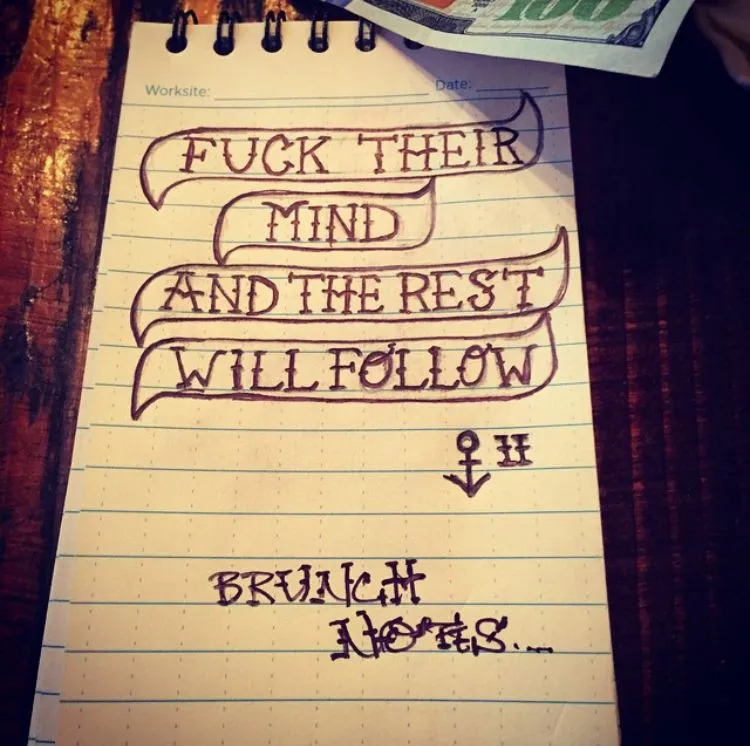 100
Worksite: Date:
FUCK THEIR
MIND
AND THE REST
WILL FOLLOW
II
BRUNCH
NOTES...